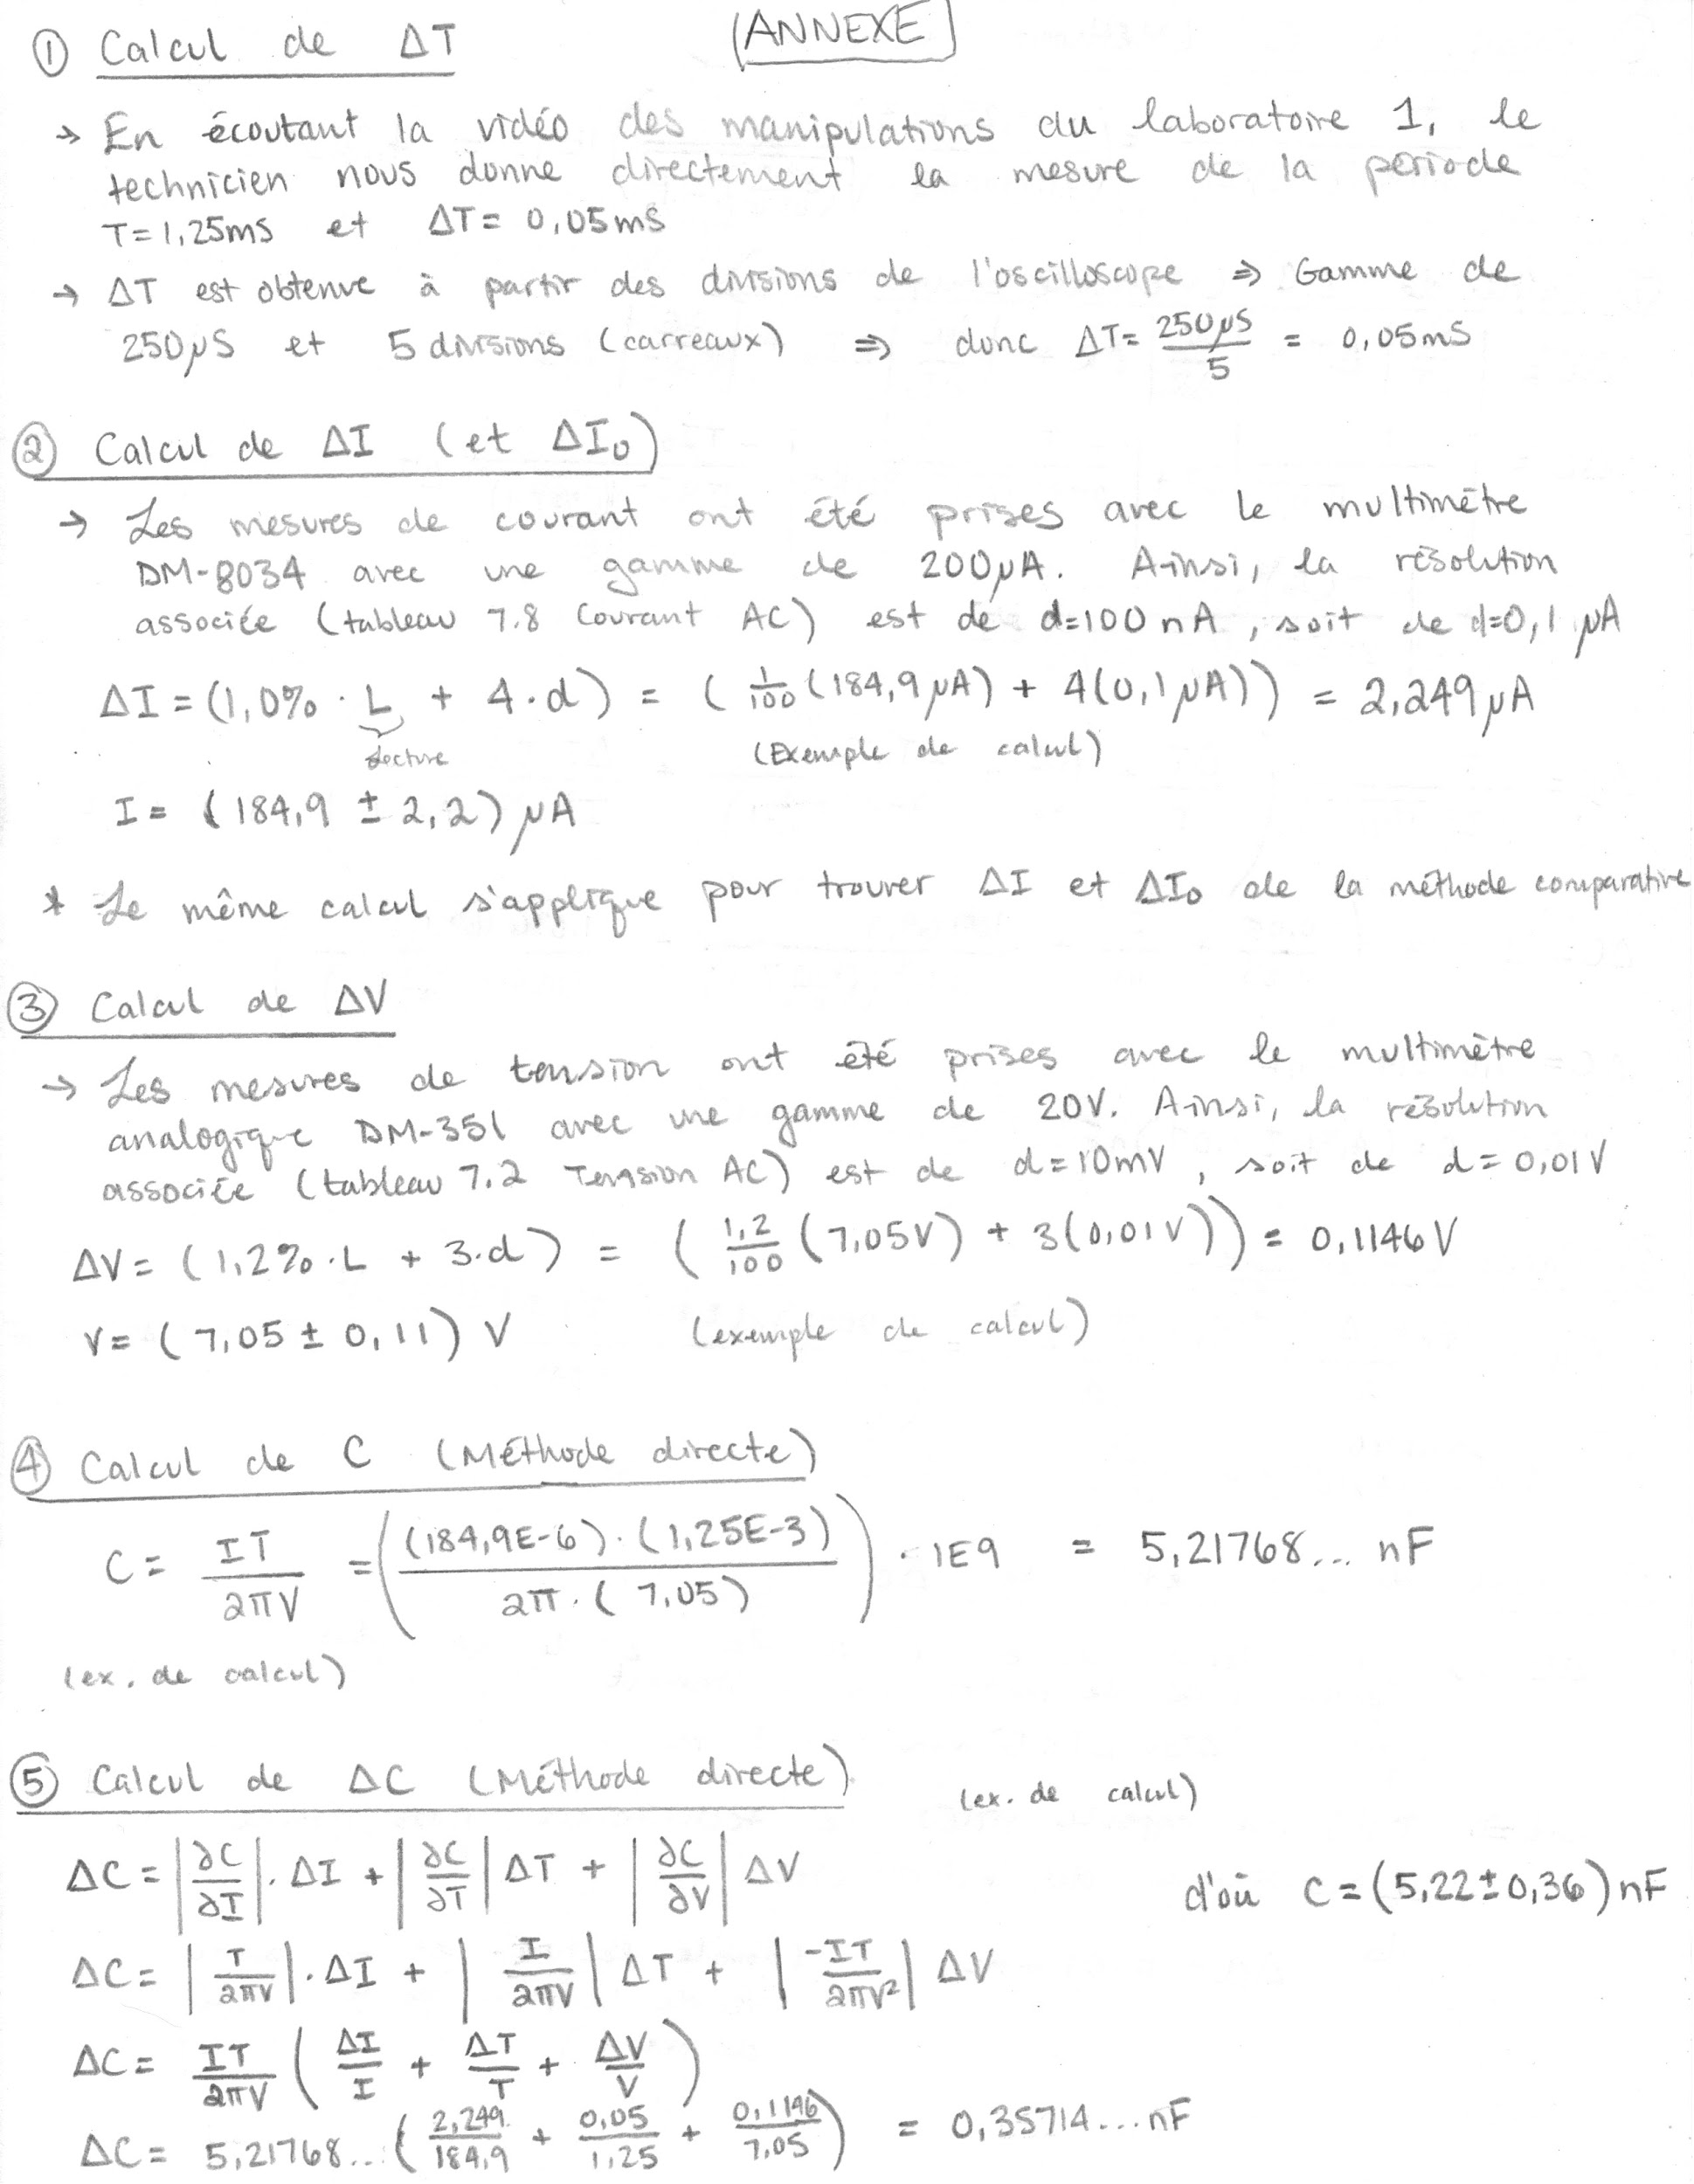 ① Calcul de ΔT
(ANNEXE]
→ En écoutant la vidéo des manipulations du laboratoire 1, le
technicien nous donne directement la mesure de la période
T=1,25mS et ΔT= 0,05mS
→ ΔT est obtenue à partir des divisions de l'oscilloscope ⇒ Gamme de
250μS et 5 divisions (carreaux) ⇒ donc ΔT= 250μS/5 = 0,05mS
② Calcul de ΔI (et ΔI₀)
→ Les mesures de courant ont été prises avec le multimètre
DM-8034 avec une gamme de 200μA. Ainsi, la résolution
associée (tableau 7.8 Courant AC) est de d=100 nA, soit de d=0,1 μA
ΔI = (1,0% · L + 4·d) = (1/100 (184,9μA) + 4(0,1μA)) = 2,249μA
lecture
(Exemple de calcul)
I = (184,9 ± 2,2) μA
* Le même calcul s'applique pour trouver ΔI et ΔI₀ de la méthode comparative
③ Calcul de ΔV
→ Les mesures de tension ont été prises avec le multimètre
analogique DM-351 avec une gamme de 20V. Ainsi, la résolution
associée (tableau 7.2 Tension AC) est de d=10mV, soit de d=0,01V
ΔV= (1,2%·L + 3·d) = (1,2/100 (7,05V) + 3(0,01V)) = 0,1146V
V= (7,05 ± 0,11) V
(exemple de calcul)
④ Calcul de C (Méthode directe)
C = IT/2πV = ((184,9E-6)·(1,25E-3)/2π·(7,05)) · 1E9 = 5,21768... nF
(ex. de calcul)
⑤ Calcul de ΔC (Méthode directe)
(ex. de calcul)
ΔC = |∂C/∂I|·ΔI + |∂C/∂T| ΔT + |∂C/∂V| ΔV
d'où C = (5,22±0,36) nF
ΔC = |T/2πV|·ΔI + |I/2πV| ΔT + |-IT/2πV²| ΔV
ΔC = IT/2πV (ΔI/I + ΔT/T + ΔV/V)
ΔC = 5,21768... (2,249/184,9 + 0,05/1,25 + 0,1146/7,05) = 0,35714... nF